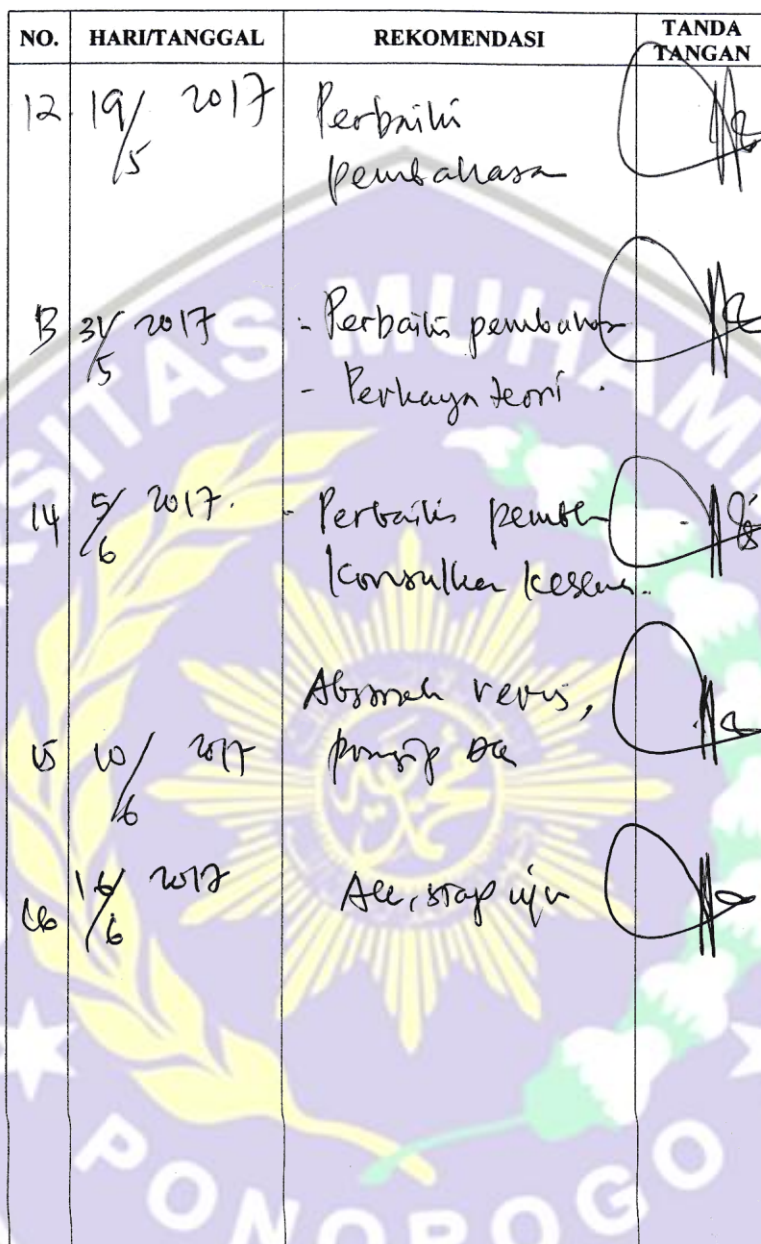 NO. HARI/TANGGAL REKOMENDASI TANDA TANGAN
12 19/5 2017 Perbaiki
pembahasa
13 31/5 2017 - Perbaiki pembahas
- Perkaya teori.
14 5/6 2017. - Perbaiki pemba
konsulkan
Abstrak revisi,
15 10/6 2017
16 16/6 2017 Acc, siap uji
SITAS MUHAMMA
PONOROGO